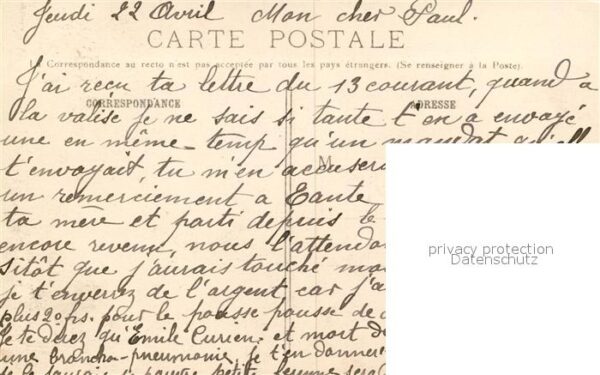 Jeudi 22 Avril Mon cher Paul.
CARTE POSTALE
La Correspondance au recto n'est pas acceptée par tous les pays étrangers. (Se renseigner à la Poste).
J'ai reçu ta lettre du 13 courant, quand a
CORRESPONDANCE ADRESSE
la valise je ne sais si tante t'en a envoyé
une en même temp qu'un mandat qu'elle
M
t'envoyait, tu m'en accusera
un remerciement a Tante
ta mère et parti depuis le
encore revenu, nous l'attendo
sitôt que j'aurais touché mo
je t'enverrez de l'argent, car j'a
plus 20 frs. pour le pousse-pousse de
Je te direz qu'Emile Curien et mort d
une broncho-pneumonie, je t'en donner
pauvre petite femme
privacy protection
Datenschutz